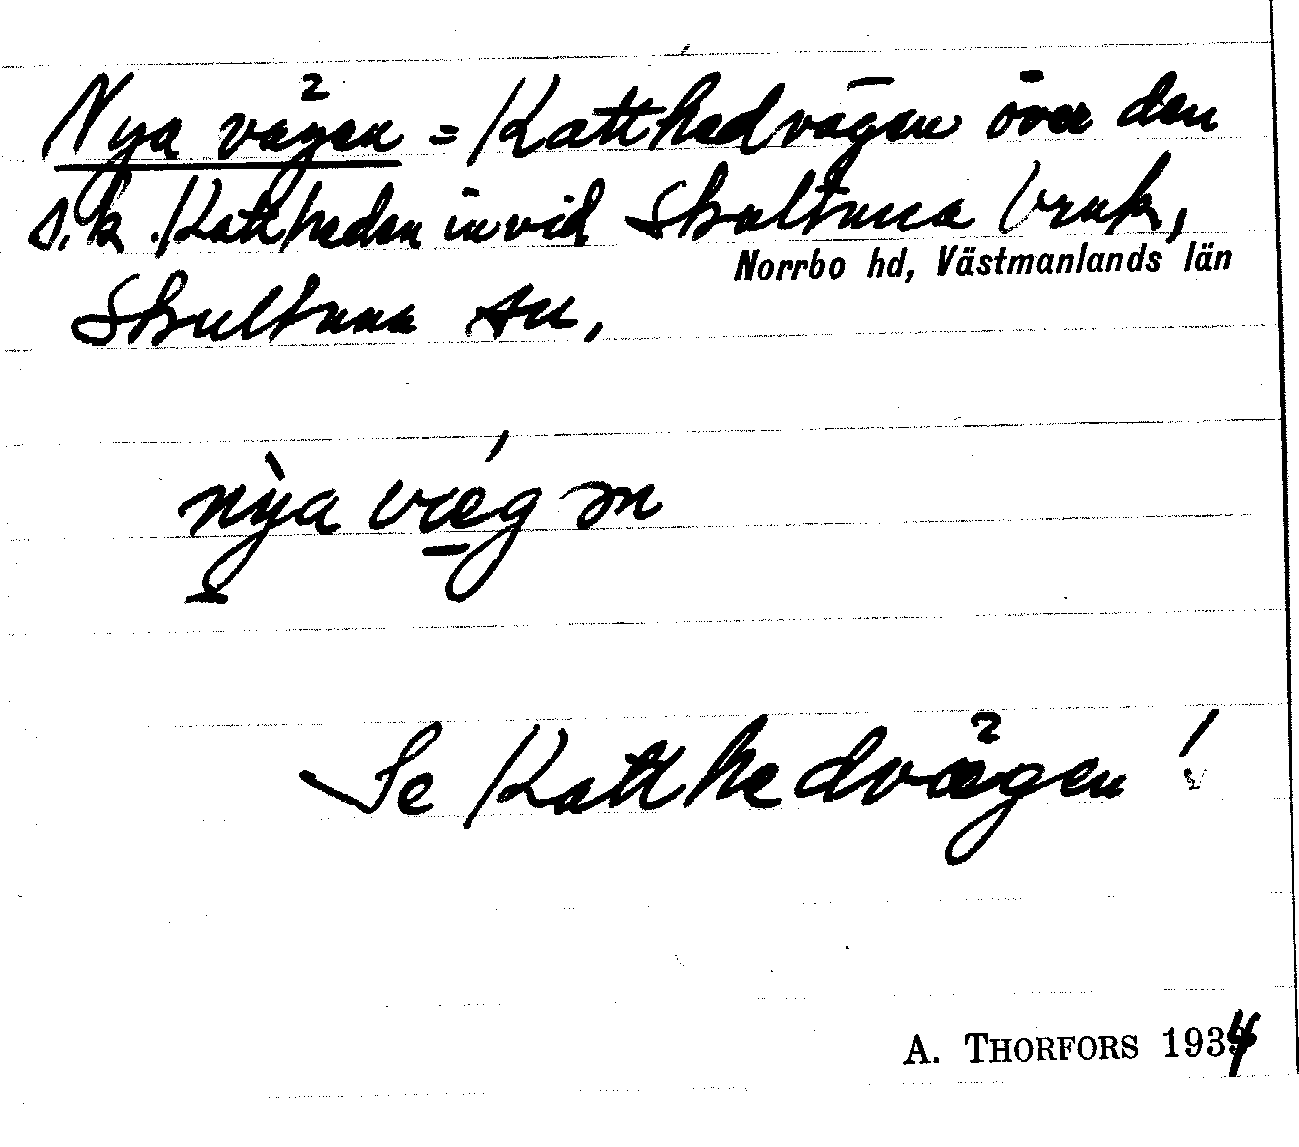 Nya vägen = Katthedvägen över den
s.k. Kattheden invid Skultuna bruk,
Norrbo hd, Västmanlands län
Skultuna sn,
nỳa væ̲g ́ən
Se Katthedvägen!
A. THORFORS 1934